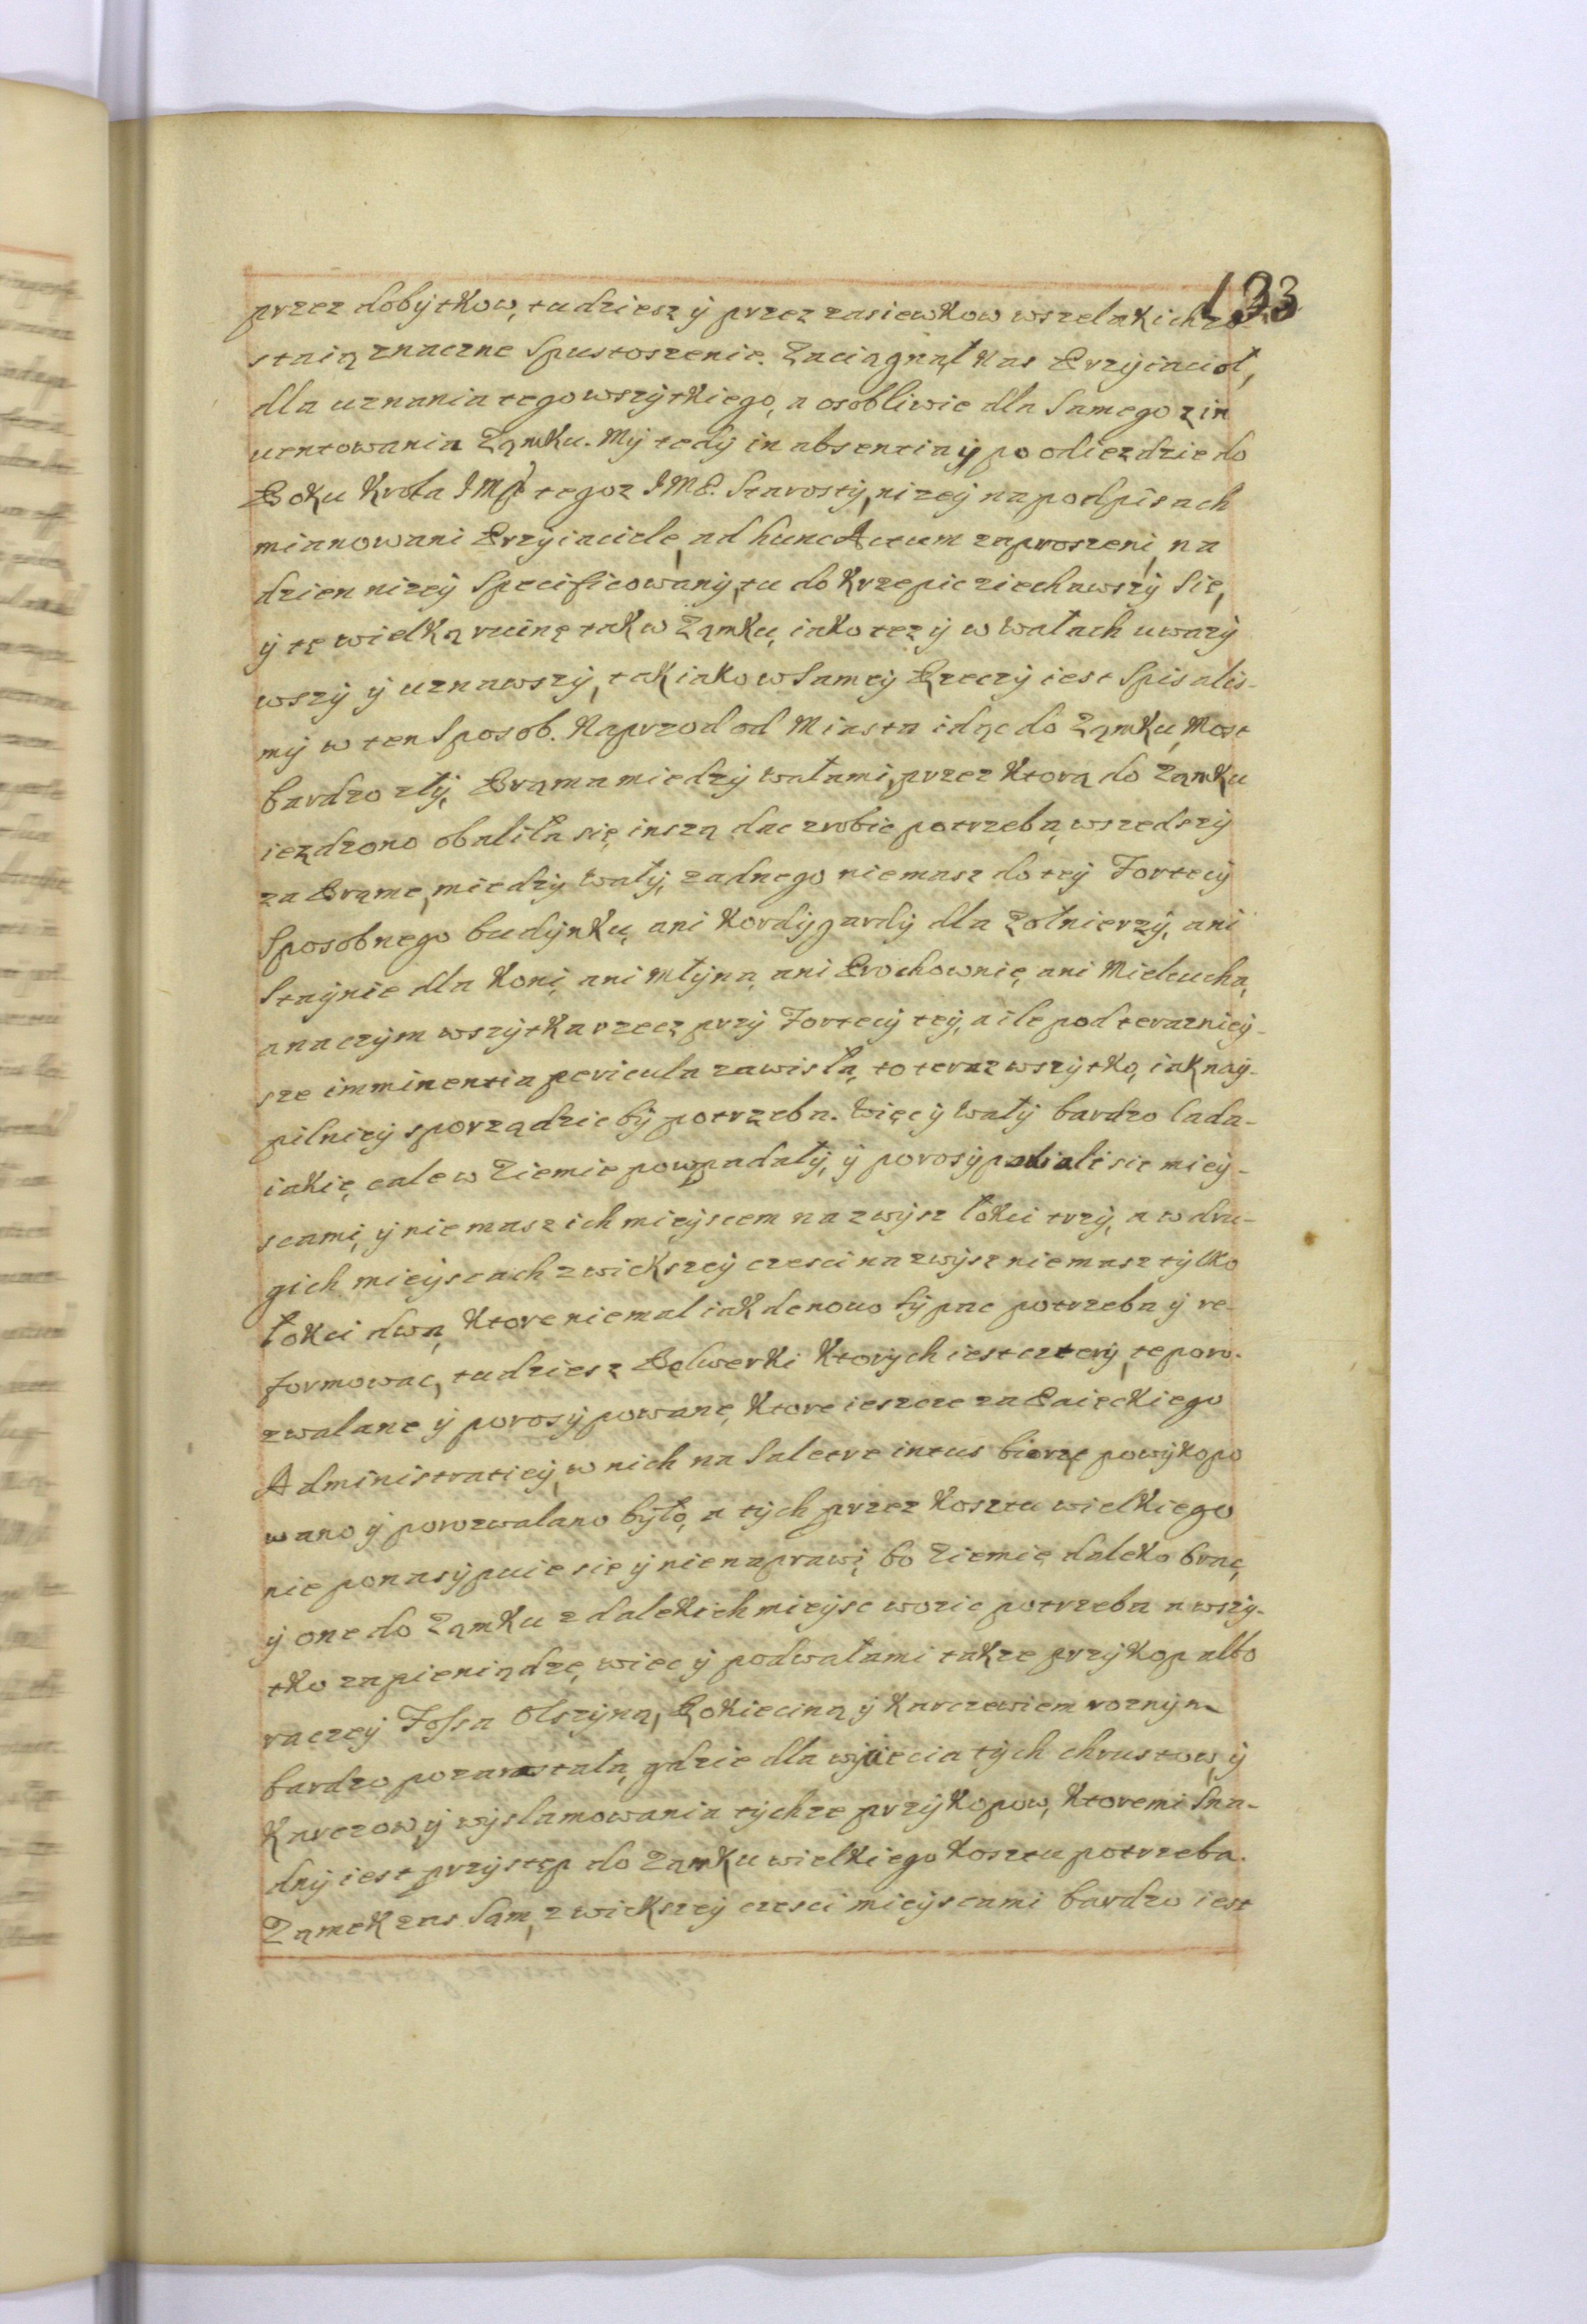 133
przez dobytkow, tudziesz ÿ przez zasiewkow wszelakich zo
staią znaczne Spustoszenie. Zaciągnął Nas Przyiaciol,
dla uznania tego wszytkiego, a osobliwie dla Samego zin
uentowania Ząmku. Mÿ tedÿ in absentia ÿ po odiezdzie do
Boku Krola JMP tegoz JMP. Starostÿ, nizeÿ na podpisach
mianowani Przÿiaciele, ad hunc Actum zaproszeni, na
dzien nizeÿ Specificowanÿ, tu do Krzepic ziechawszÿ Się,
ÿ tę wielką ruinę tak w Ząmku, iako tez ÿ w Wałach uwazÿ
wszÿ ÿ uznawszÿ, tak iako w Sameÿ Rzeczÿ iest Spisalis-
mÿ w ten Sposob. Naprzod od Miasta idąc do Ząmku, Most
bardzo złÿ, Brąma miedzÿ Wałami, przez Ktorą do Ząmku
iezdzono obaliła się, inszą dac zrobic potrzeba, wszedszÿ
za Brąmę, miedzÿ Wałÿ, zadnego niemasz do teÿ Fortecÿ
Sposobnego budÿnku, ani Kordÿgardÿ dla Zołnierzÿ, ani
Staÿnie dla Koni, ani Młÿna, ani Prochownie, ani Mielcucha,
a na czÿm wszÿtka rzecz przÿ Fortecÿ teÿ, a ile pod teraznieÿ-
sze imminentia pericula zawisła, to teraz wszÿtko, iak naÿ-
pilnieÿ sporządzic bÿ potrzeba. Więc ÿ Wałÿ bardzo lada-
iakie, cale w Ziemie powpadałÿ, ÿ porosÿpali sie mieÿ-
scami, ÿ niemasz ich mieÿscem na zwÿsz łokci trzÿ, a w dru-
gich mieÿscach z wiekszeÿ czesci na zwÿsz niemasz tÿlko
łokci dwa, Ktore niemal iak denouo sÿpac potrzeba ÿ re-
formowac, tudziesz Bolwerki Ktorÿch iest czterÿ, te poro-
zwalane ÿ porosÿpowane, Ktore ieszcze za Paięckiego
Administratieÿ, w nich na Saletre intus biorąc powÿkopo
wano ÿ porozwalano bÿło, a tÿch przez Kosztu wielkiego
nie ponasÿpuie się ÿ nienaprawi, bo Ziemię daleko brac,
ÿ one do Ząmku z dalekich mieÿsc wozic potrzeba a wszÿ-
tko za pieniądze, wiec ÿ pod wałami takze przÿkop albo
raczeÿ Fossa Olszÿną, Rokieciną ÿ Karczewiem roznÿm
bardzo pozarastała, gdzie dla wÿiecia tÿch chrustow, ÿ
Karczow ÿ wÿslamowania tÿchze przÿkopow, Ktoremi Sna-
dnÿ iest przÿstęp do Ząmku wielkiego Kosztu potrzeba.
Ząmek zas Sąm, z wiekszeÿ czesci mieÿscami bardzo iest